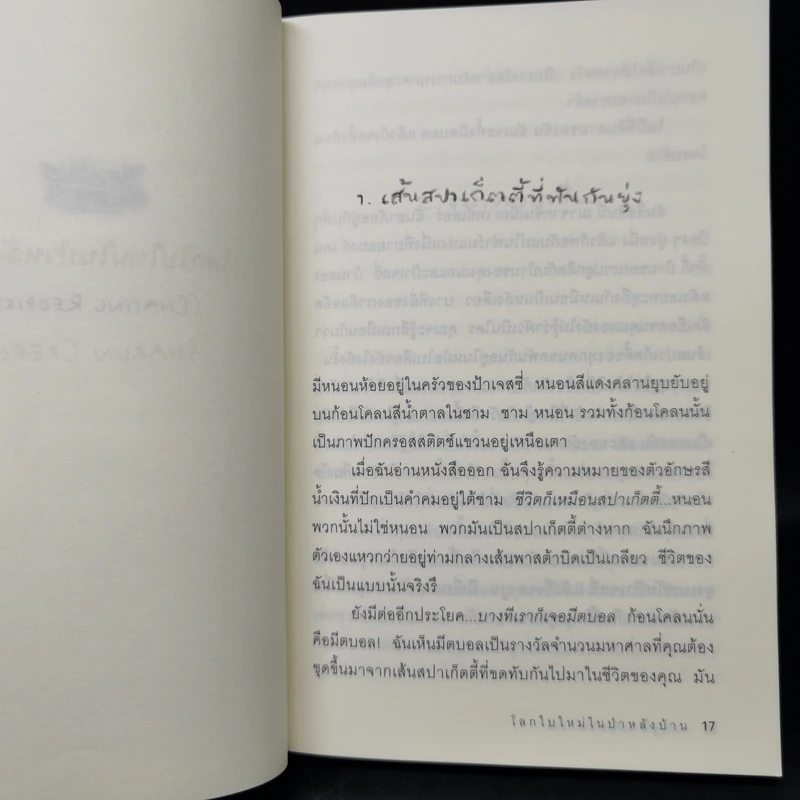 ๑. เส้นสปาเก็ตตี้ที่พันกันยุ่ง
มีหนอนห้อยอยู่ในครัวของป้าเจสซี่ หนอนสีแดงคลานยุบยับอยู่
บนก้อนโคลนสีน้ำตาลในชาม ชาม หนอน รวมทั้งก้อนโคลนนั้น
เป็นภาพปักครอสสติตช์แขวนอยู่เหนือเตา
เมื่อฉันอ่านหนังสือออก ฉันจึงรู้ความหมายของตัวอักษรสี
น้ำเงินที่ปักเป็นคำคมอยู่ใต้ชาม ชีวิตก็เหมือนสปาเก็ตตี้...หนอน
พวกนั้นไม่ใช่หนอน พวกมันเป็นสปาเก็ตตี้ต่างหาก ฉันนึกภาพ
ตัวเองแหวกว่ายอยู่ท่ามกลางเส้นพาสต้าบิดเป็นเกลียว ชีวิตของ
ฉันเป็นแบบนั้นจริงรึ
ยังมีต่ออีกประโยค...บางทีเราก็เจอมีตบอล ก้อนโคลนนั่น
คือมีตบอล! ฉันเห็นมีตบอลเป็นรางวัลจำนวนมหาศาลที่คุณต้อง
ขุดขึ้นมาจากเส้นสปาเก็ตตี้ที่ขดทับกันไปมาในชีวิตของคุณ มัน
โลกใบใหม่ในป่าหลังบ้าน 17